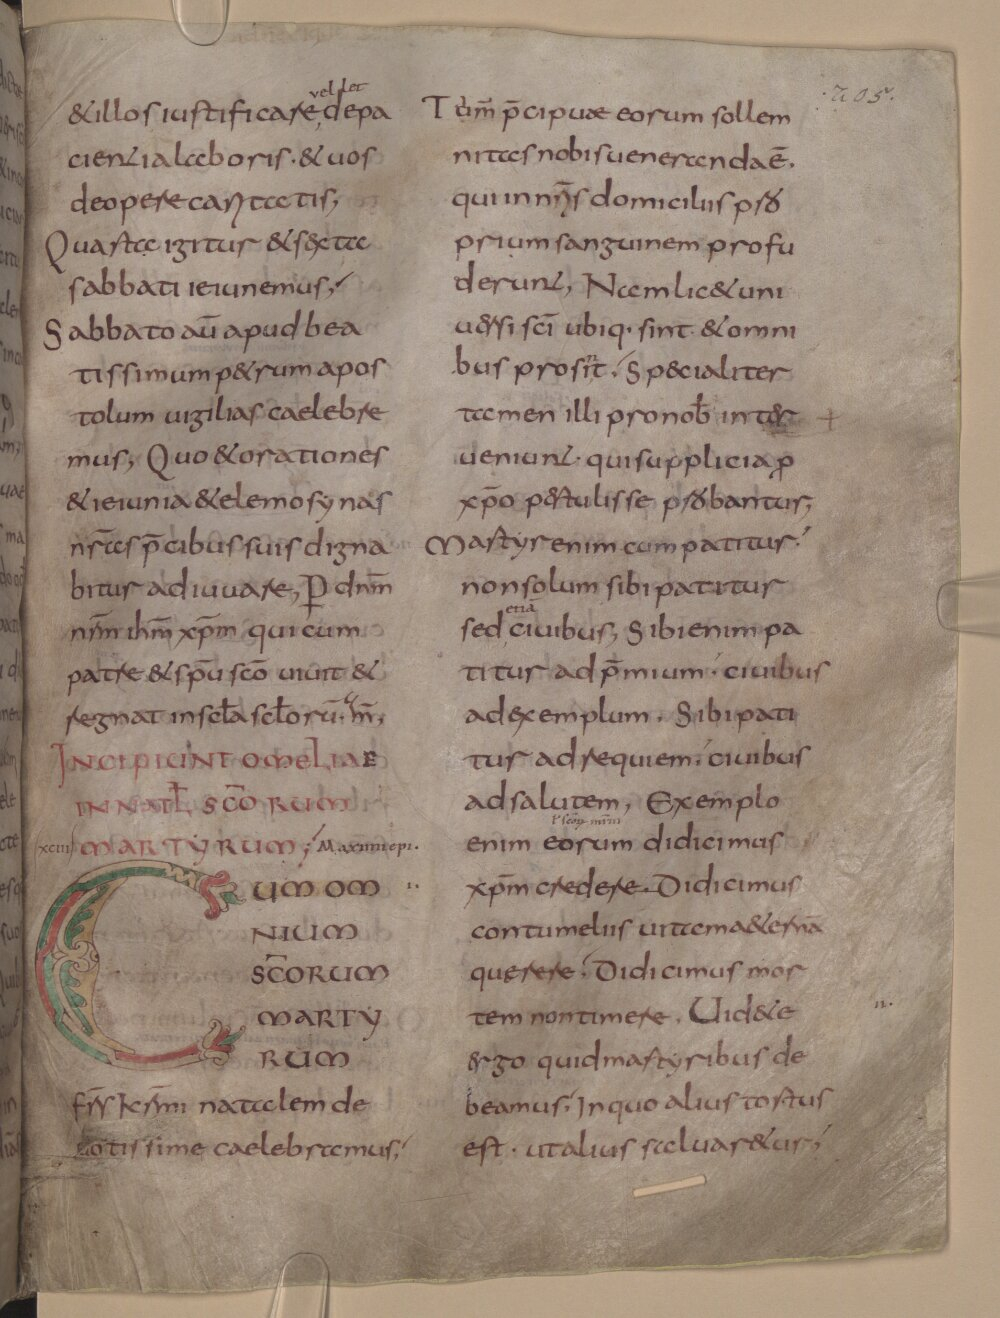 205.
vel let
&illos iustificare, depa
cientia laboris · & uos
deopere caritatis;
Quarta igitur & sexta
sabbati ieiunemus;
Sabbato au̅ apud bea
tissimum petrum apos
tolum uigilias caelebre
mus; Quo & orationes
& ieiunia & elemosynas
nr̅as p̅cibus suis digna
bitur adiuuare; P̲ dnm̅
nrm̅ ihm̅ xp̅m qui cum
patre & sp̅u sc̅o uiuit &
regnat in sc̅la sc̅lorū. am̅;
INCIPIUNT OMELIAE
IN NATL̅ SC̅ORUM
xciii MARTYRUM; Maximi epi.
CUM OM I.
NIUM
SC̅ORUM
MARTY
RUM
fr̅s̅ kr̅s̅mi natalem de
uotissime caelebramus;
Tūm̅ p̅cipuae eorum sollem
nitas nobis ueneranda ē.
qui in nr̅is domiciliis pro
prium sanguinem profu
derunt; Nam licet uni
uersi sc̅i ubiq· sint & omni
bus prosint; Specialiter
tamen illi pro nob̅ inter
ueniunt · qui supplicia p̲
xp̅o pertulisse probantur;
Martyr enim cum patitur ·
non solum sibi patitur
etiā
sed ciuibus; Sibi enim pa
titur ad p̅mium · ciuibus
ad exemplum. Sibi pati
tur ad requiem; ciuibus
ad salutem; Exemplo
enim eorum didicimus
xp̅m credere. Didicimus
contumeliis uitam aeternā
querere; Didicimus mor
tem non timere. Uidete II.
ergo quid martyribus de
beamus; In quo alius tostus
est · ut alius saluaretur;